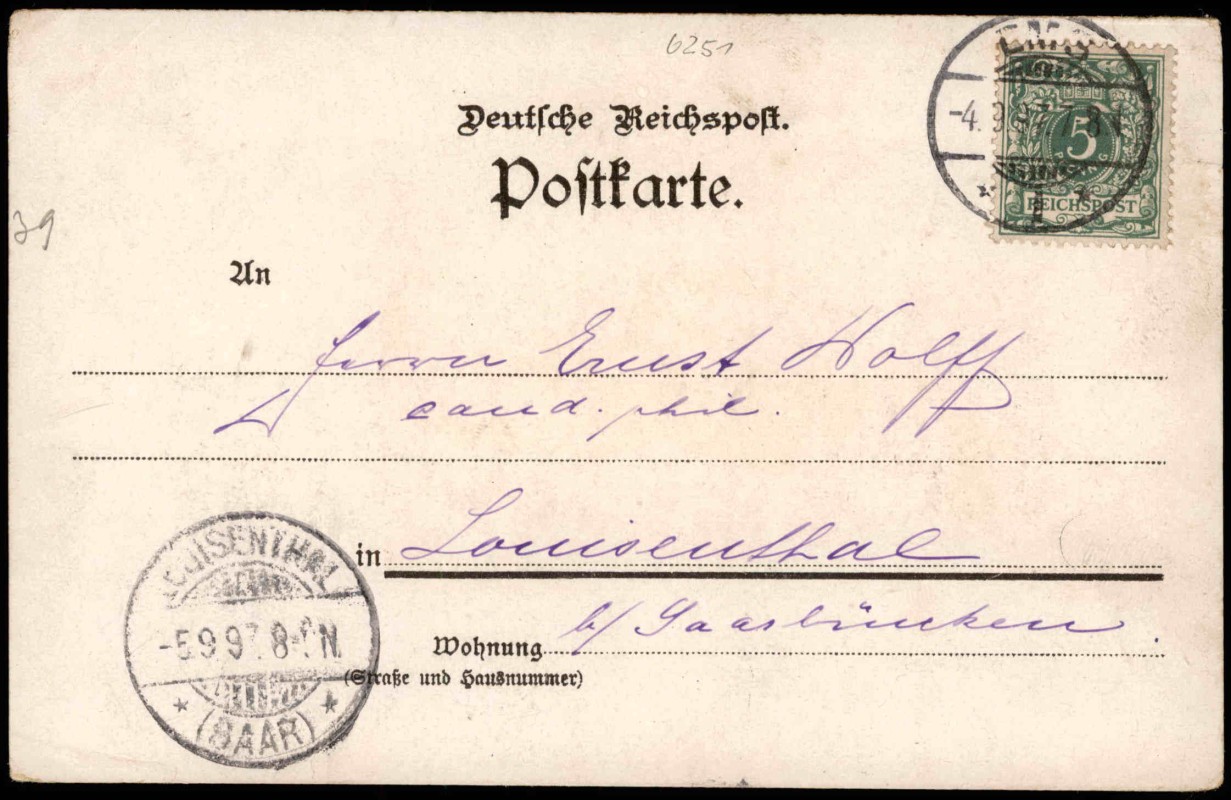 6251
Deutsche Reichspost.
Postkarte.
EMS
-4. 9.97. 7-8 N.
* 1 *
5
PFENNIG
REICHSPOST
39
An
Herrn Ernst Wolff
cand. phil.
in Louisenthal
Wohnung b/ Saarbrücken.
(Straße und Hausnummer)
LOUISENTHAL
-5.9.97. 8-9 N.
* (SAAR) *